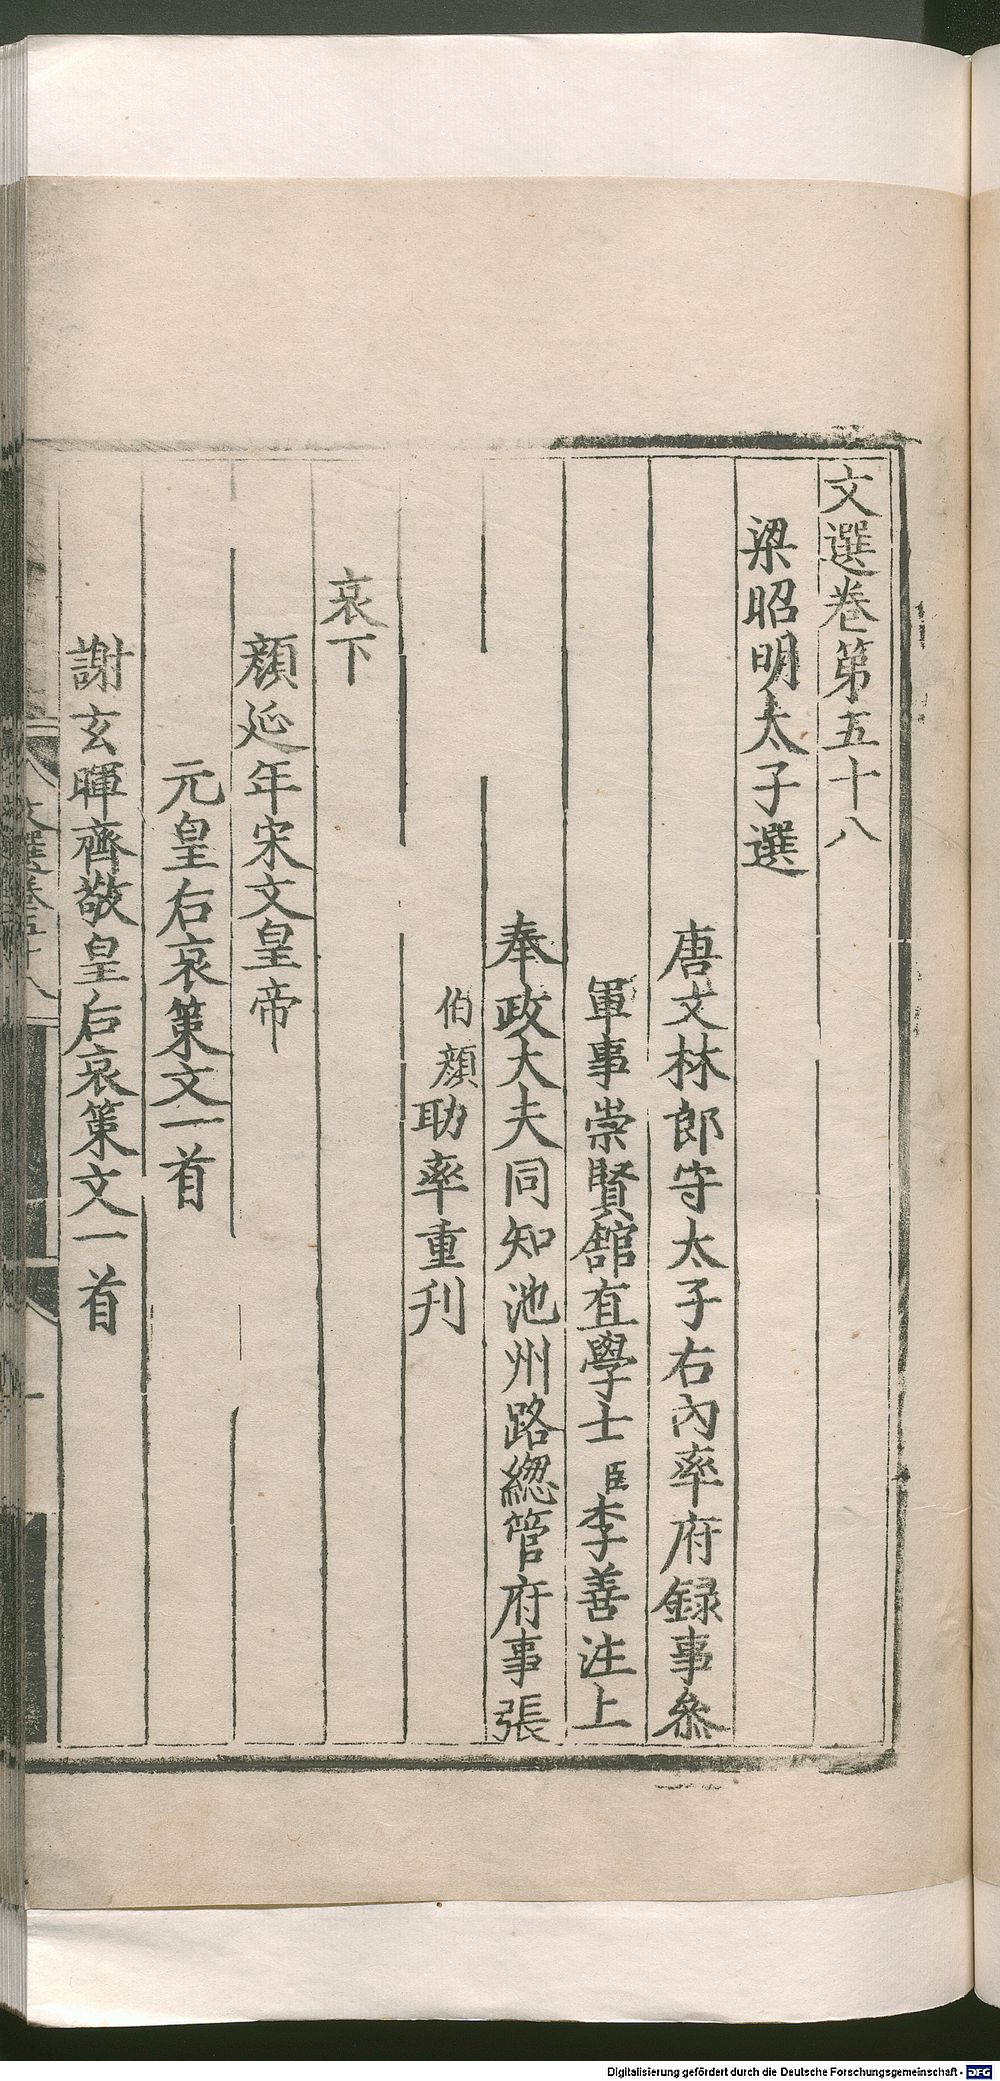 文選卷第五十八
梁昭明太子選
唐文林郎守太子右內率府録事叅
軍事崇賢館直學士臣李善注上
奉政大夫同知池州路緫管府事張
伯顔助率重刋
哀下
顔延年宋文皇帝
元皇右哀策文一首
謝玄暉齊敬皇后哀策文一首
文選卷五十八
Digitalisierung gefördert durch die Deutsche Forschungsgemeinschaft - DFG